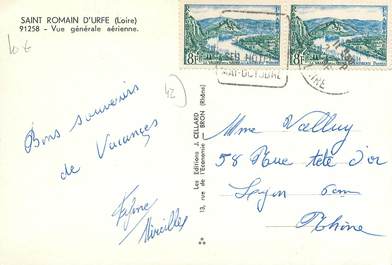 SAINT ROMAIN D'URFE (Loire)
91258 - Vue générale aérienne.
10 €
42
8F
8F
MAI-OCTOBRE
Bons souvenirs
de Vacances
Mireille
Les Editions J. CELLARD
13, rue de l'Economie - BRON (Rhône)
Mme Valluy
58 Rue tête d'or
Lyon 6em
Rhône